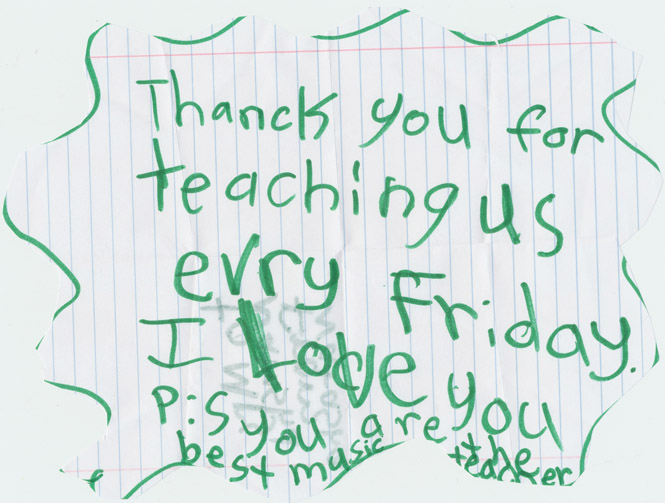 Thanck you for
teaching us
evry Friday.
I Love you
P:S you are the
best music teacher